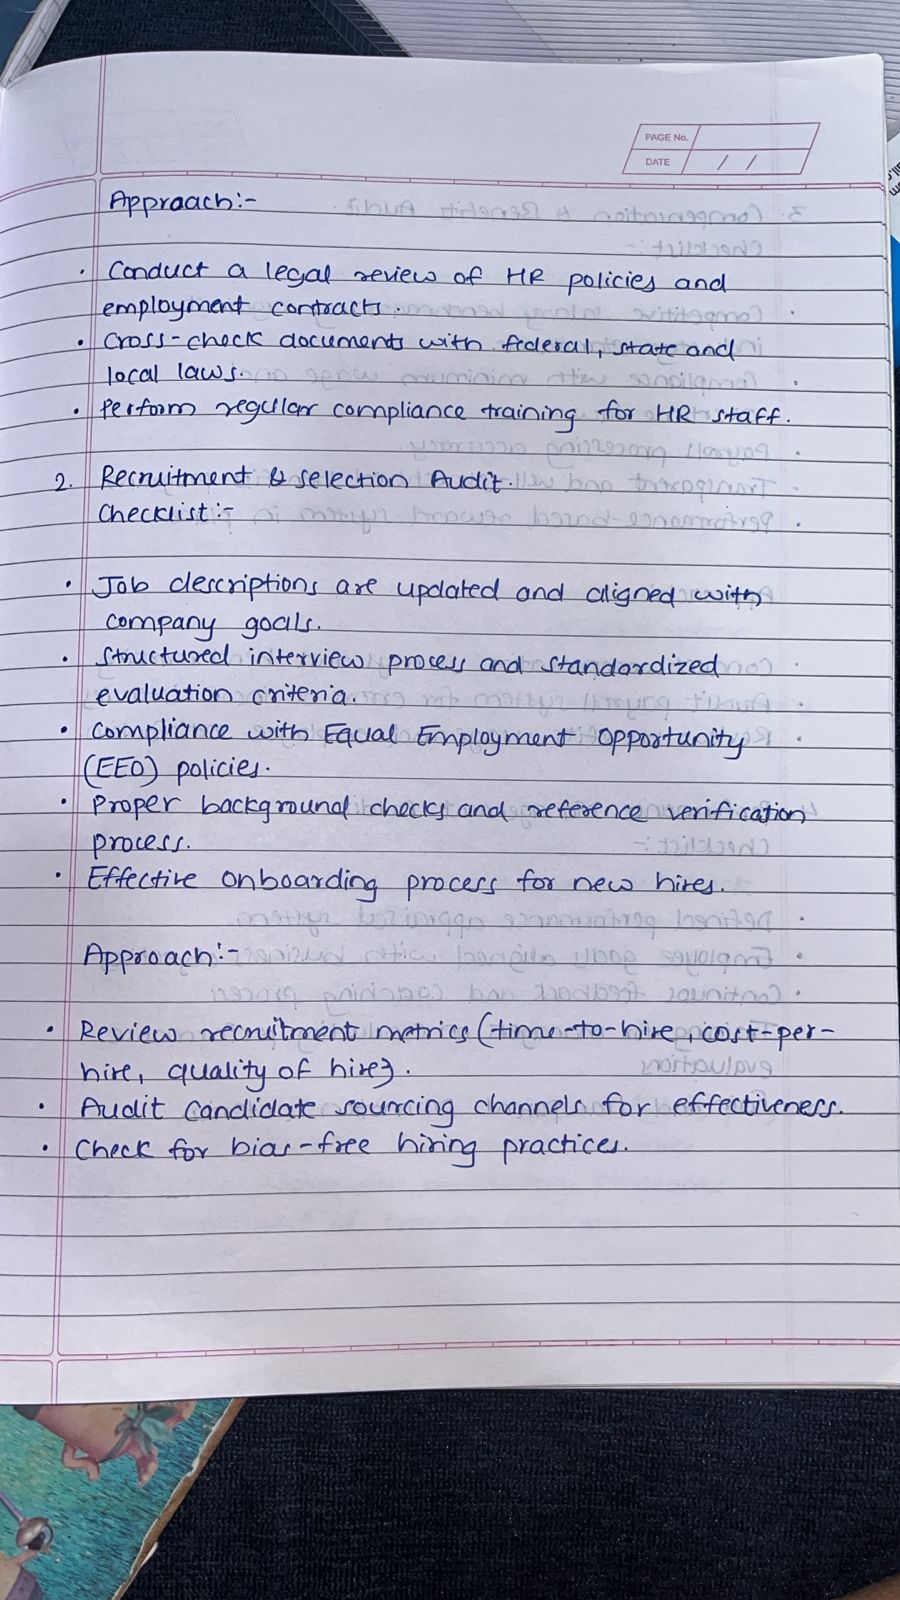 PAGE No.
DATE / /
Approach:-
• Conduct a legal review of HR policies and
employment contracts.
• Cross-check documents with federal, state and
local laws.
• Perform regular compliance training for HR staff.
2. Recruitment & selection Audit.
Checklist:-
• Job descriptions are updated and aligned with
company goals.
• Structured interview process and standardized
evaluation criteria.
• Compliance with Equal Employment Opportunity
(EEO) policies.
• Proper background checks and reference verification
process.
• Effective onboarding process for new hires.
Approach:-
• Review recruitment metrics (time-to-hire, cost-per-
hire, quality of hire).
• Audit candidate sourcing channels for effectiveness.
• Check for bias-free hiring practices.